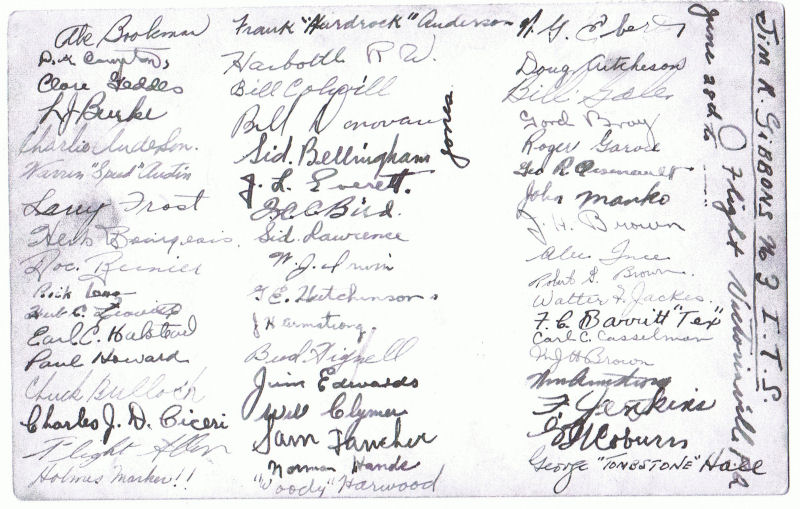 Abe Bookman
D.K. Campton,
Clare Geddes
L J Burke
Charlie Anderson.
Warren "Spud" Austin
Larry Frost
Herb Bourgeois.
Doc. Renier
Herb C.
Earl C. Halstead
Paul Howard
Chuck Bullock
Charles J. D. Ciceri
Flight Allen
Holmes Marker!!
Frank "Hardrock" Anderson
Harbottle R W.
Bill Colvill
Bill Donovan
Jones
Sid. Bellingham
J. L. Everett.
Bird.
Sid. Lawrence
W. J. Irwin
G E. Hutchinson.
J H Armstrong.
Bud. Hignell
Jim Edwards
Will Clymer
Sam Fancher
Norman Hands
"Woody" Harwood
W. G. Ebert
Doug Aitcheson
Bill Gales
Gord Bray
Roger Garou
Geo R. Arsenault
John Manko
J. H. Brown
Alec Ince
Robert G. Brown.
Walter F. Jackes.
F. C. Barritt "Tex"
Carl C. Casselman
H Brown
Wm Armstrong
F Jenkins
Coburn
George "TOMBSTONE" Hall
Jim R. GIBBONS No 3 I.T.S.
O Flight Victoriaville PQ
June 28th to ----